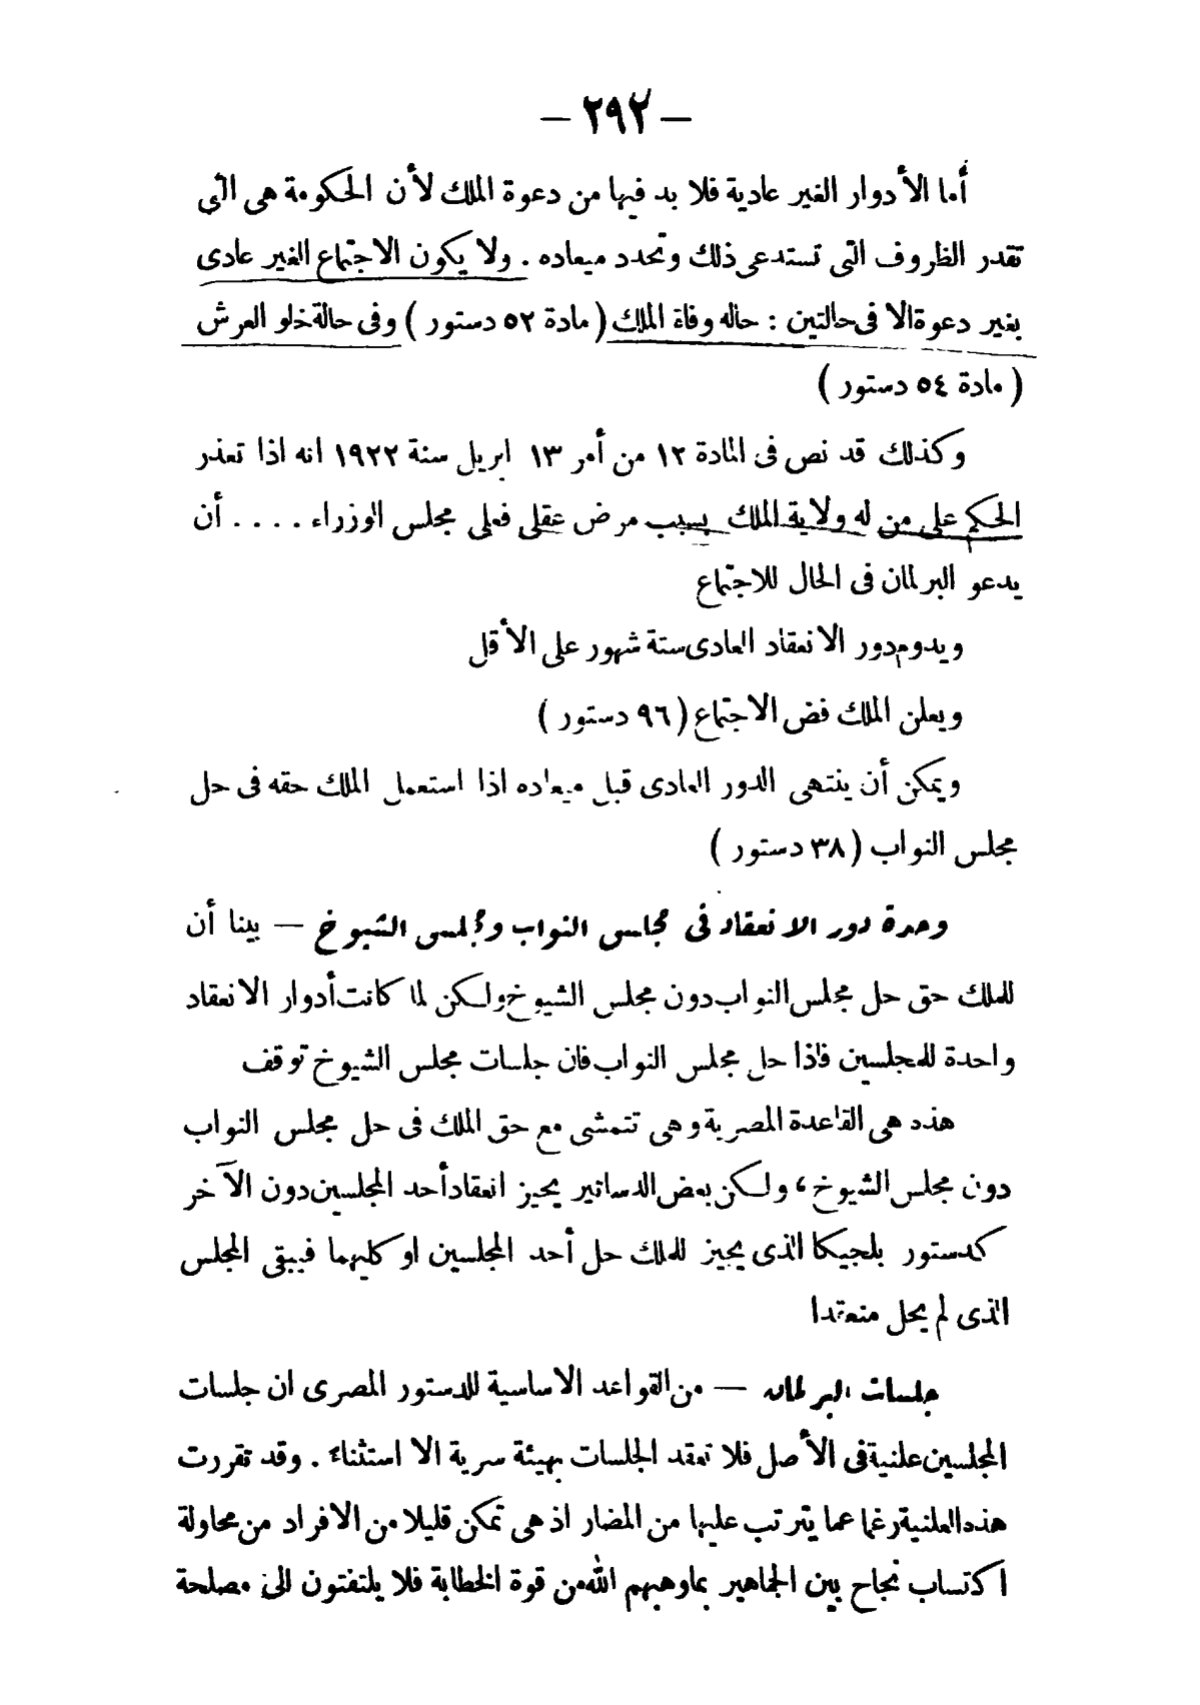 — ٢٩٢ —
أما الأدوار الغير عادية فلا بد فيها من دعوة الملك لأن الحكومة هى التى
تقدر الظروف التى تستدعى ذلك وتحدد ميعاده . ولا يكون الاجتماع الغير عادى
بغير دعوة الا فى حالتين : حاله وفاة الملك ( مادة ٥٢ دستور ) وفى حالة خلو العرش
( مادة ٥٤ دستور )
وكذلك قد نص فى المادة ١٢ من أمر ١٣ ابريل سنة ١٩٢٢ انه اذا تعذر
الحكم على من له ولاية الملك بسبب مرض عقلى فعلى مجلس الوزراء . . . . أن
يدعو البرلمان فى الحال للاجتماع
ويدوم دور الانعقاد العادى ستة شهور على الأقل
ويعلن الملك فض الاجتماع ( ٩٦ دستور )
ويمكن أن ينتهى الدور العادى قبل ميعاده اذا استعمل الملك حقه فى حل
مجلس النواب ( ٣٨ دستور )
وحدة دور الانعقاد فى مجلس النواب ومجلس الشيوخ — بينا أن
للملك حق حل مجلس النواب دون مجلس الشيوخ ولكن لما كانت أدوار الانعقاد
واحدة للمجلسين فاذا حل مجلس النواب فان جلسات مجلس الشيوخ توقف
هذه هى القاعدة المصرية وهى تتمشى مع حق الملك فى حل مجلس النواب
دون مجلس الشيوخ ، ولكن بعض الدساتير يجيز انعقاد أحد المجلسين دون الآخر
كدستور بلجيكا الذى يجيز للملك حل أحد المجلسين او كليهما فيبقى المجلس
الذى لم يحل منعقدا
جلسات البرلمان — من القواعد الاساسية للدستور المصرى ان جلسات
المجلسين علنية فى الأصل فلا تعقد الجلسات بهيئة سرية الا استثناء . وقد تقررت
هذه العلنية رغما عما يترتب عليها من المضار اذ هى تمكن قليلا من الافراد من محاولة
اكتساب نجاح بين الجماهير بما وهبهم الله من قوة الخطابة فلا يلتفتون الى مصلحة